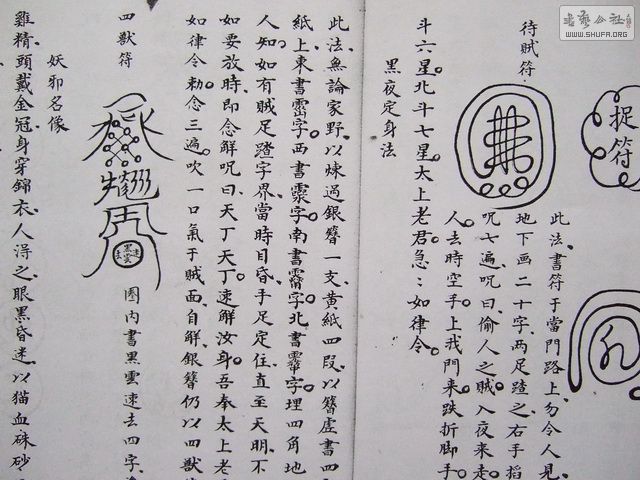 捉符
待賊符
此法書符于當門路上勿令人見
地下画二十字两足踏之右手掐
咒七遍咒曰偷人之賊入夜来走
人去時空手上我門来跌折脚手
斗六星北斗七星太上老君急:如律令
黑夜定身法
此法無論家野以煉過銀簪一支黄紙四段以簪虚書四
紙上東書字西書字南書字北書字埋四角地
人知如有賊足踏字界當時目昏手足定住直至天明不
如要放時即念解咒曰天丁天丁速解汝身吾奉太上老
如律令勅念三遍吹一口氣于賊面自解銀簪仍以四獸
四獸符
黑雲速去
圏内書黑雲速去四字
妖邪名像
雞精頭戴金冠身穿錦衣人淂之眼黑昏迷以猫血硃砂
书艺公社
WWW.SHUFA.ORG